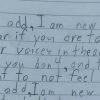 add, I am new
if you are ta
r voices in thear
you don't, and t
t to not feel
add, I am new